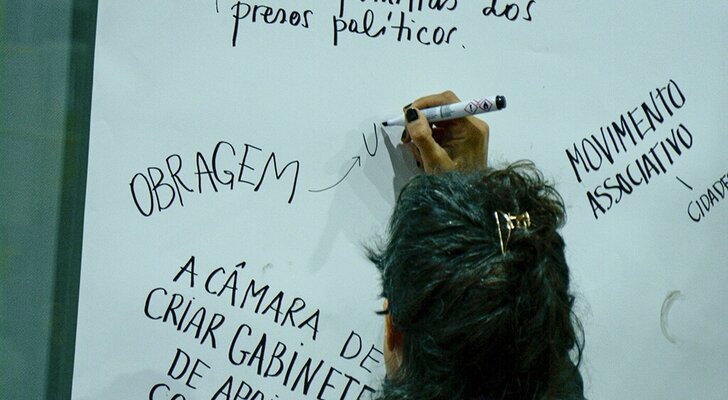 dos
presos políticos.
OBRAGEM → U
MOVIMENTO
ASSOCIATIVO
CIDADE
A CÂMARA DE
CRIAR GABINETE
DE